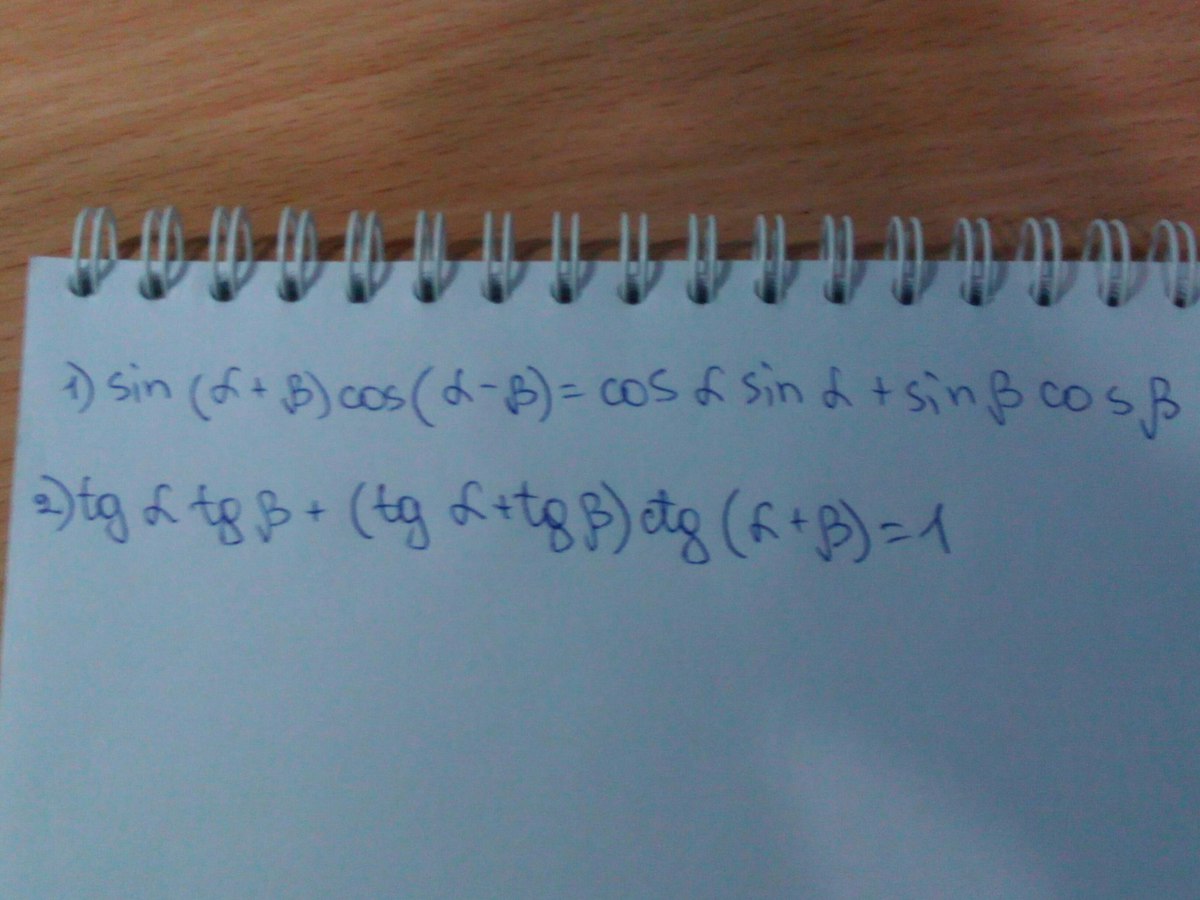 1) sin (α + β) cos (α - β) = cos α sin α + sin β cos β
2) tg α tg β + (tg α + tg β) ctg (α + β) = 1